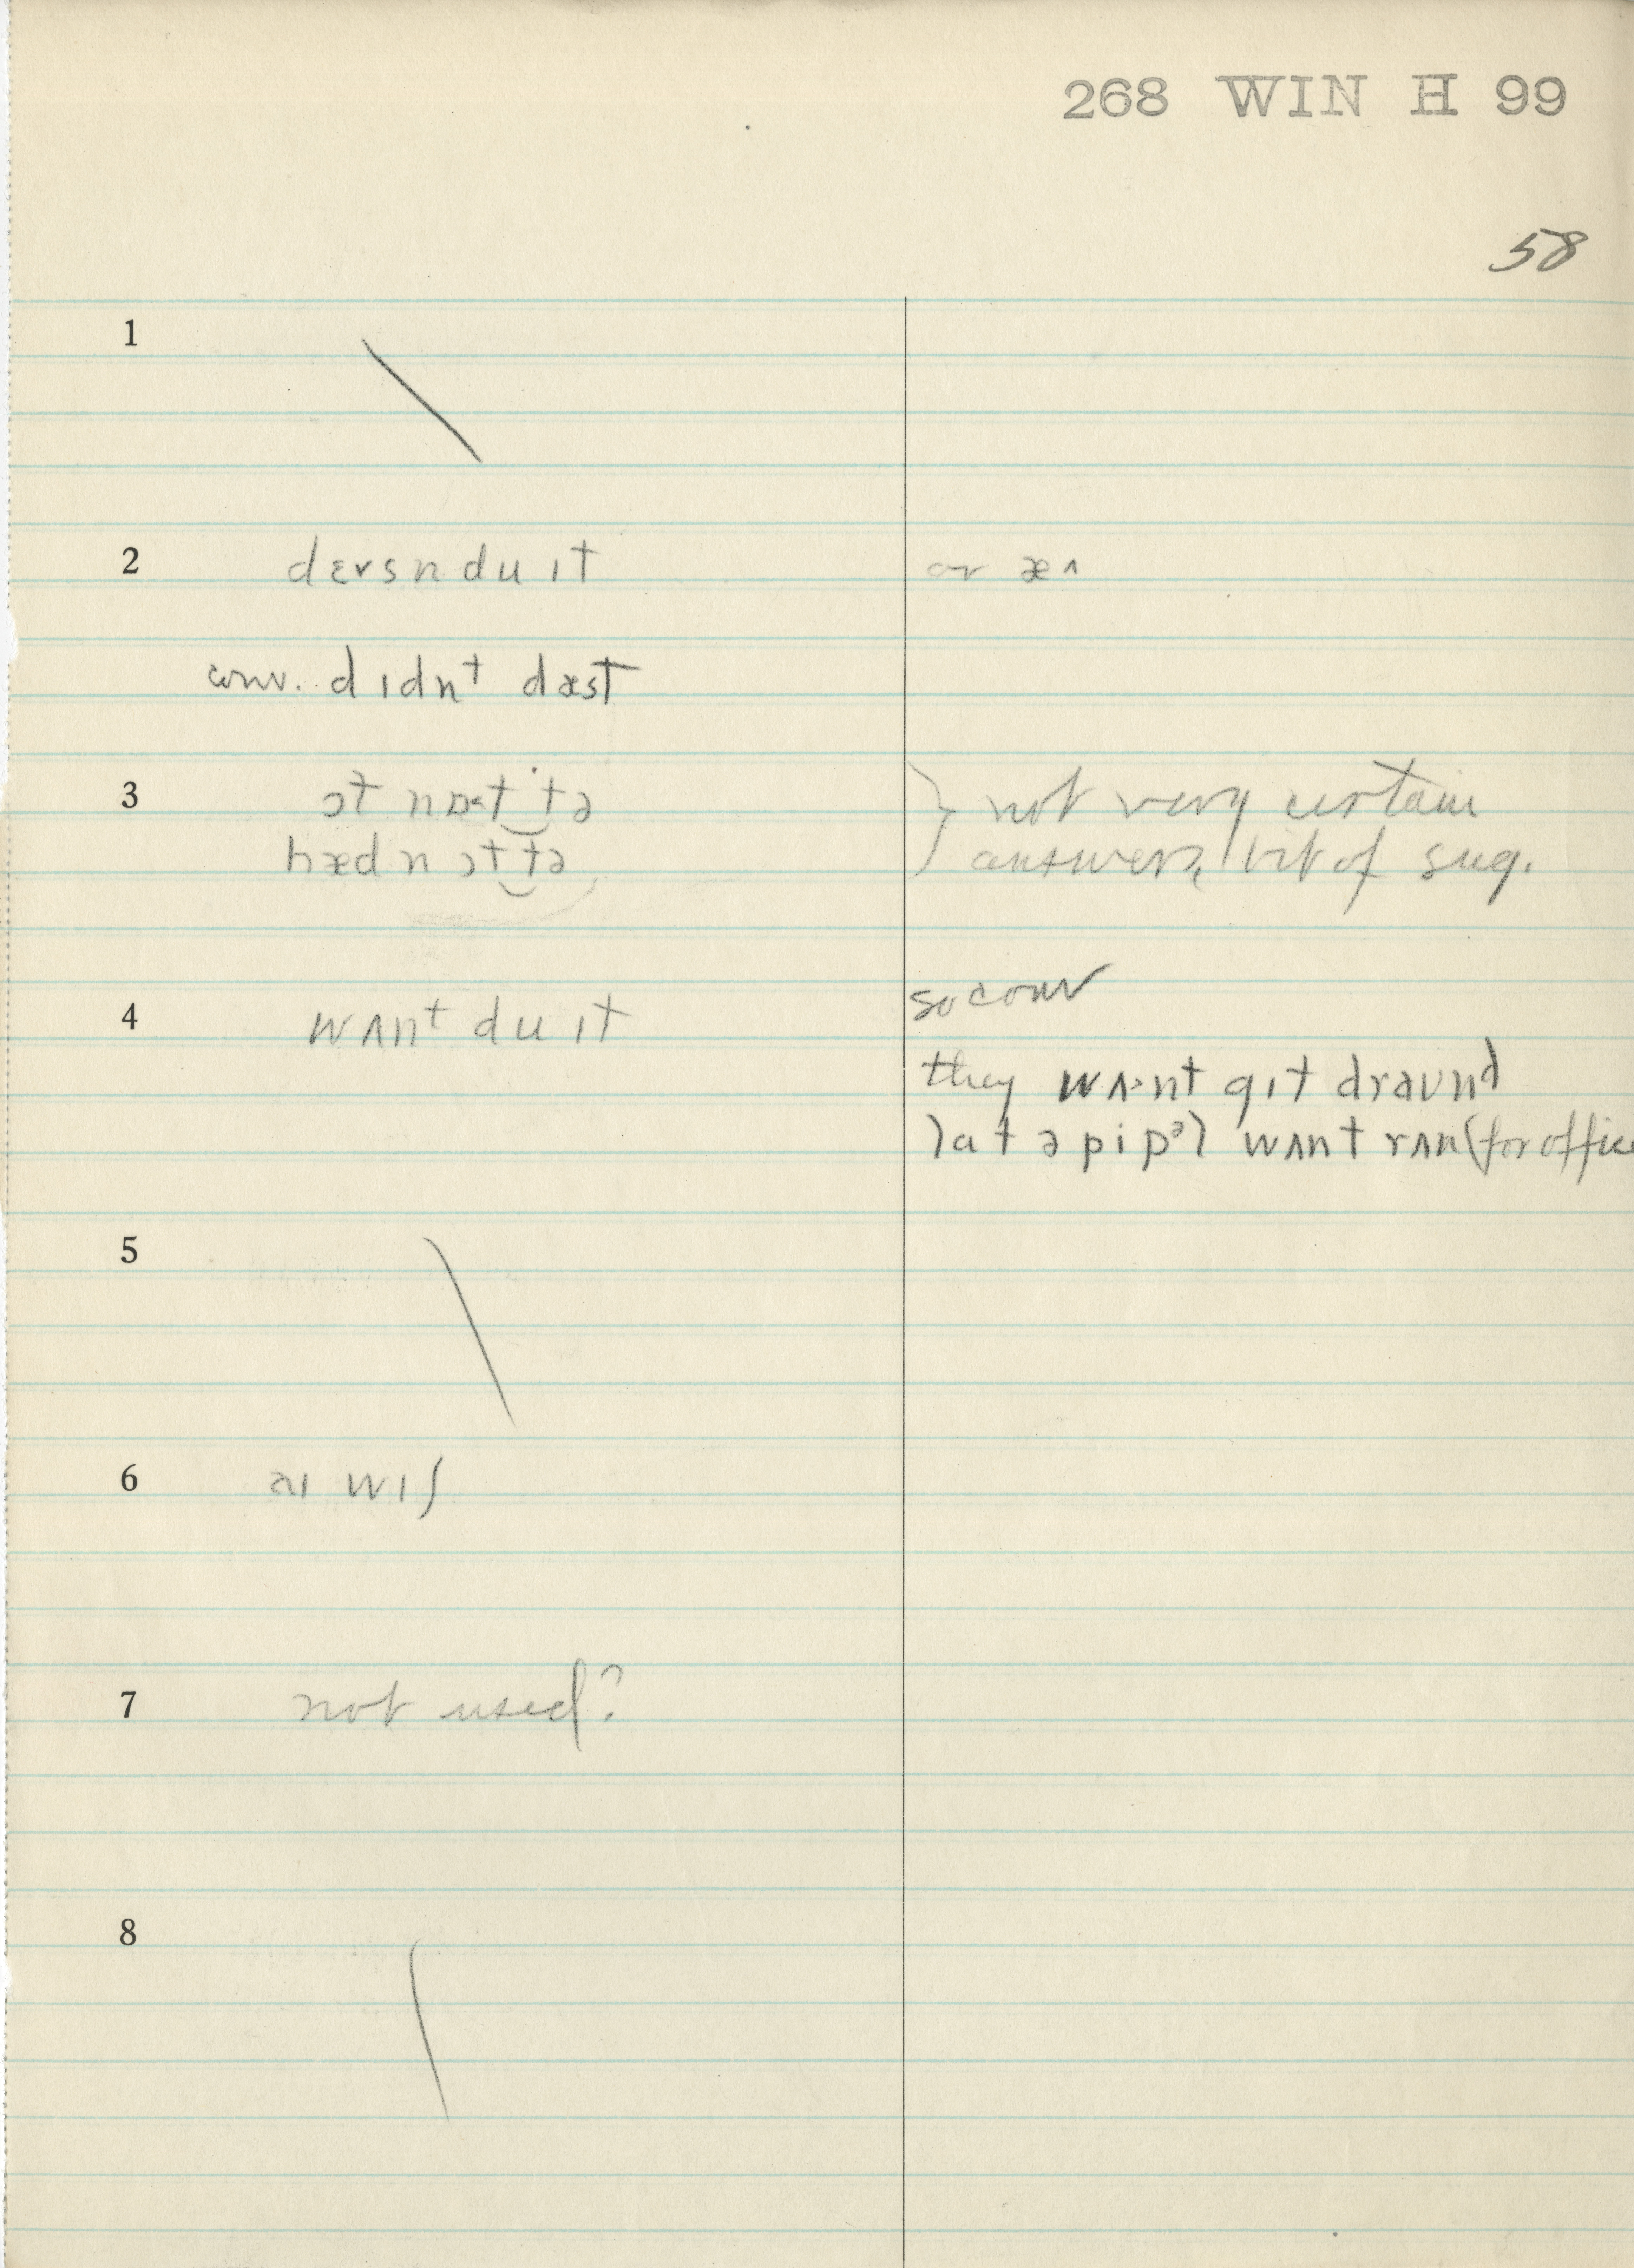 268 WIN H 99
58
1
2 dɛɤsn du ɪt or æ˄
conv. dɪdnᵗ dæst
3 ɔt nɒ˂t tə } not very certain
hæd n ɔt tə answers, bit of sug.
4 wʌnᵗ du ɪt so conv
they wʌ˃nt gɪt draʊnᵈ
wʌnt rʌn (for office
5
6 aɪ wɪʃ
7 not used?
8